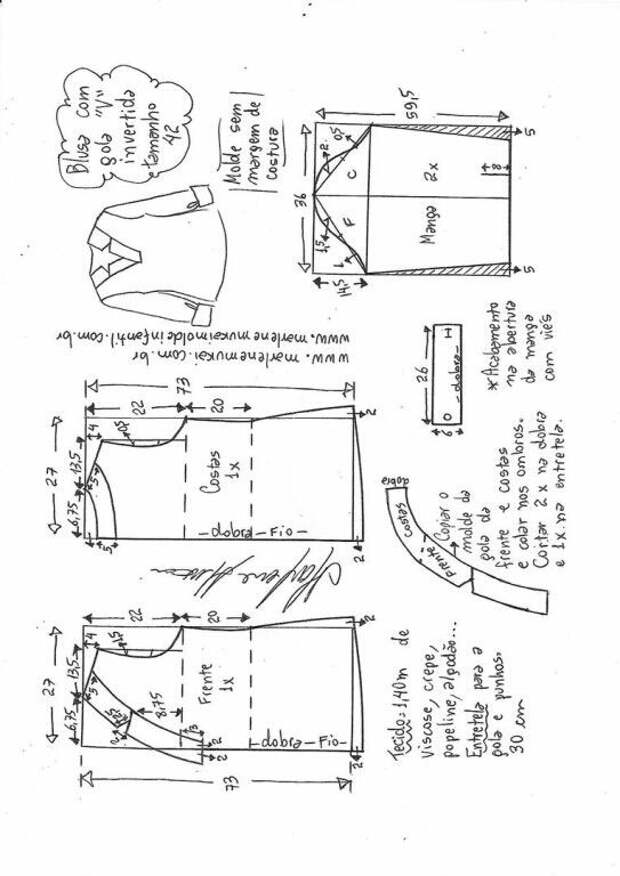 Blusa com
gola "V"
invertida
tamanho
42
Molde sem
margem de
costura
www.marlenemukai.com.br
www.marlenemukaimoldeinfantil.com.br
36
59,5
14,5
1,5
2
0,5
1
F
C
Manga
2x
8
5
5
26
6
O -dobra- H
*Acabamento
na abertura
da manga
com viés
27
6,75
13,5
4
5
5
0,5
22
20
73
Costas
1x
-dobra-Fio-
2
2
27
6,75
13,5
4
5
1,5
22
20
8,75
3
2
2
73
Frente
1x
-dobra-Fio-
2
2
dobra
Costas
Frente
Copiar o
molde da
gola da
frente e costas
e colar nos ombros.
Cortar 2x na dobra
e 1x na entretela.
Tecido=1,40m de
viscose, crepe,
popeline, algodão...
Entretela para a
gola e punhos.
30 cm